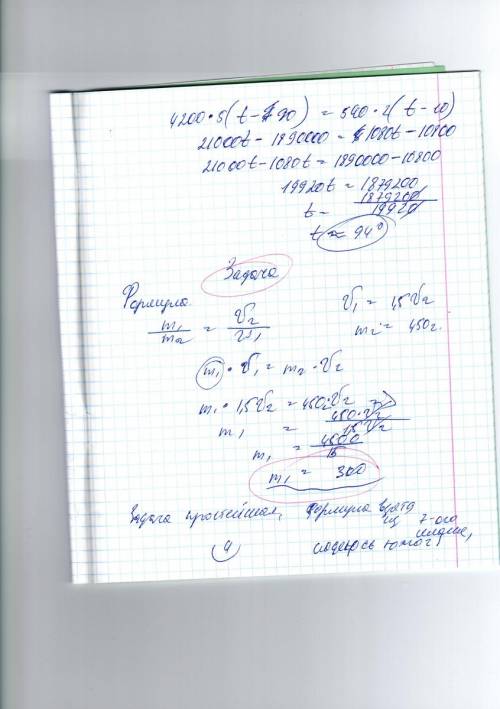 4200·5(t-90) = 540·2(t-10)
21000t - 1890000 = 1080t - 10800
21000t - 1080t = 1890000 - 10800
19920t = 1879200
t = 1879200/19920
t ≈ 94°
Задача
Формула.
m₁/m₂ = v₂/v₁
v₁ = 1,5v₂
m₂ = 450г.
m₁·v₁ = m₂·v₂
m₁·1,5v₂ = 450·v₂
m₁ = 450·v₂/1,5v₂
m₁ = 4500/15
m₁ = 300
Задача простейшая, формула взята
из 7-ого
надеюсь помог,